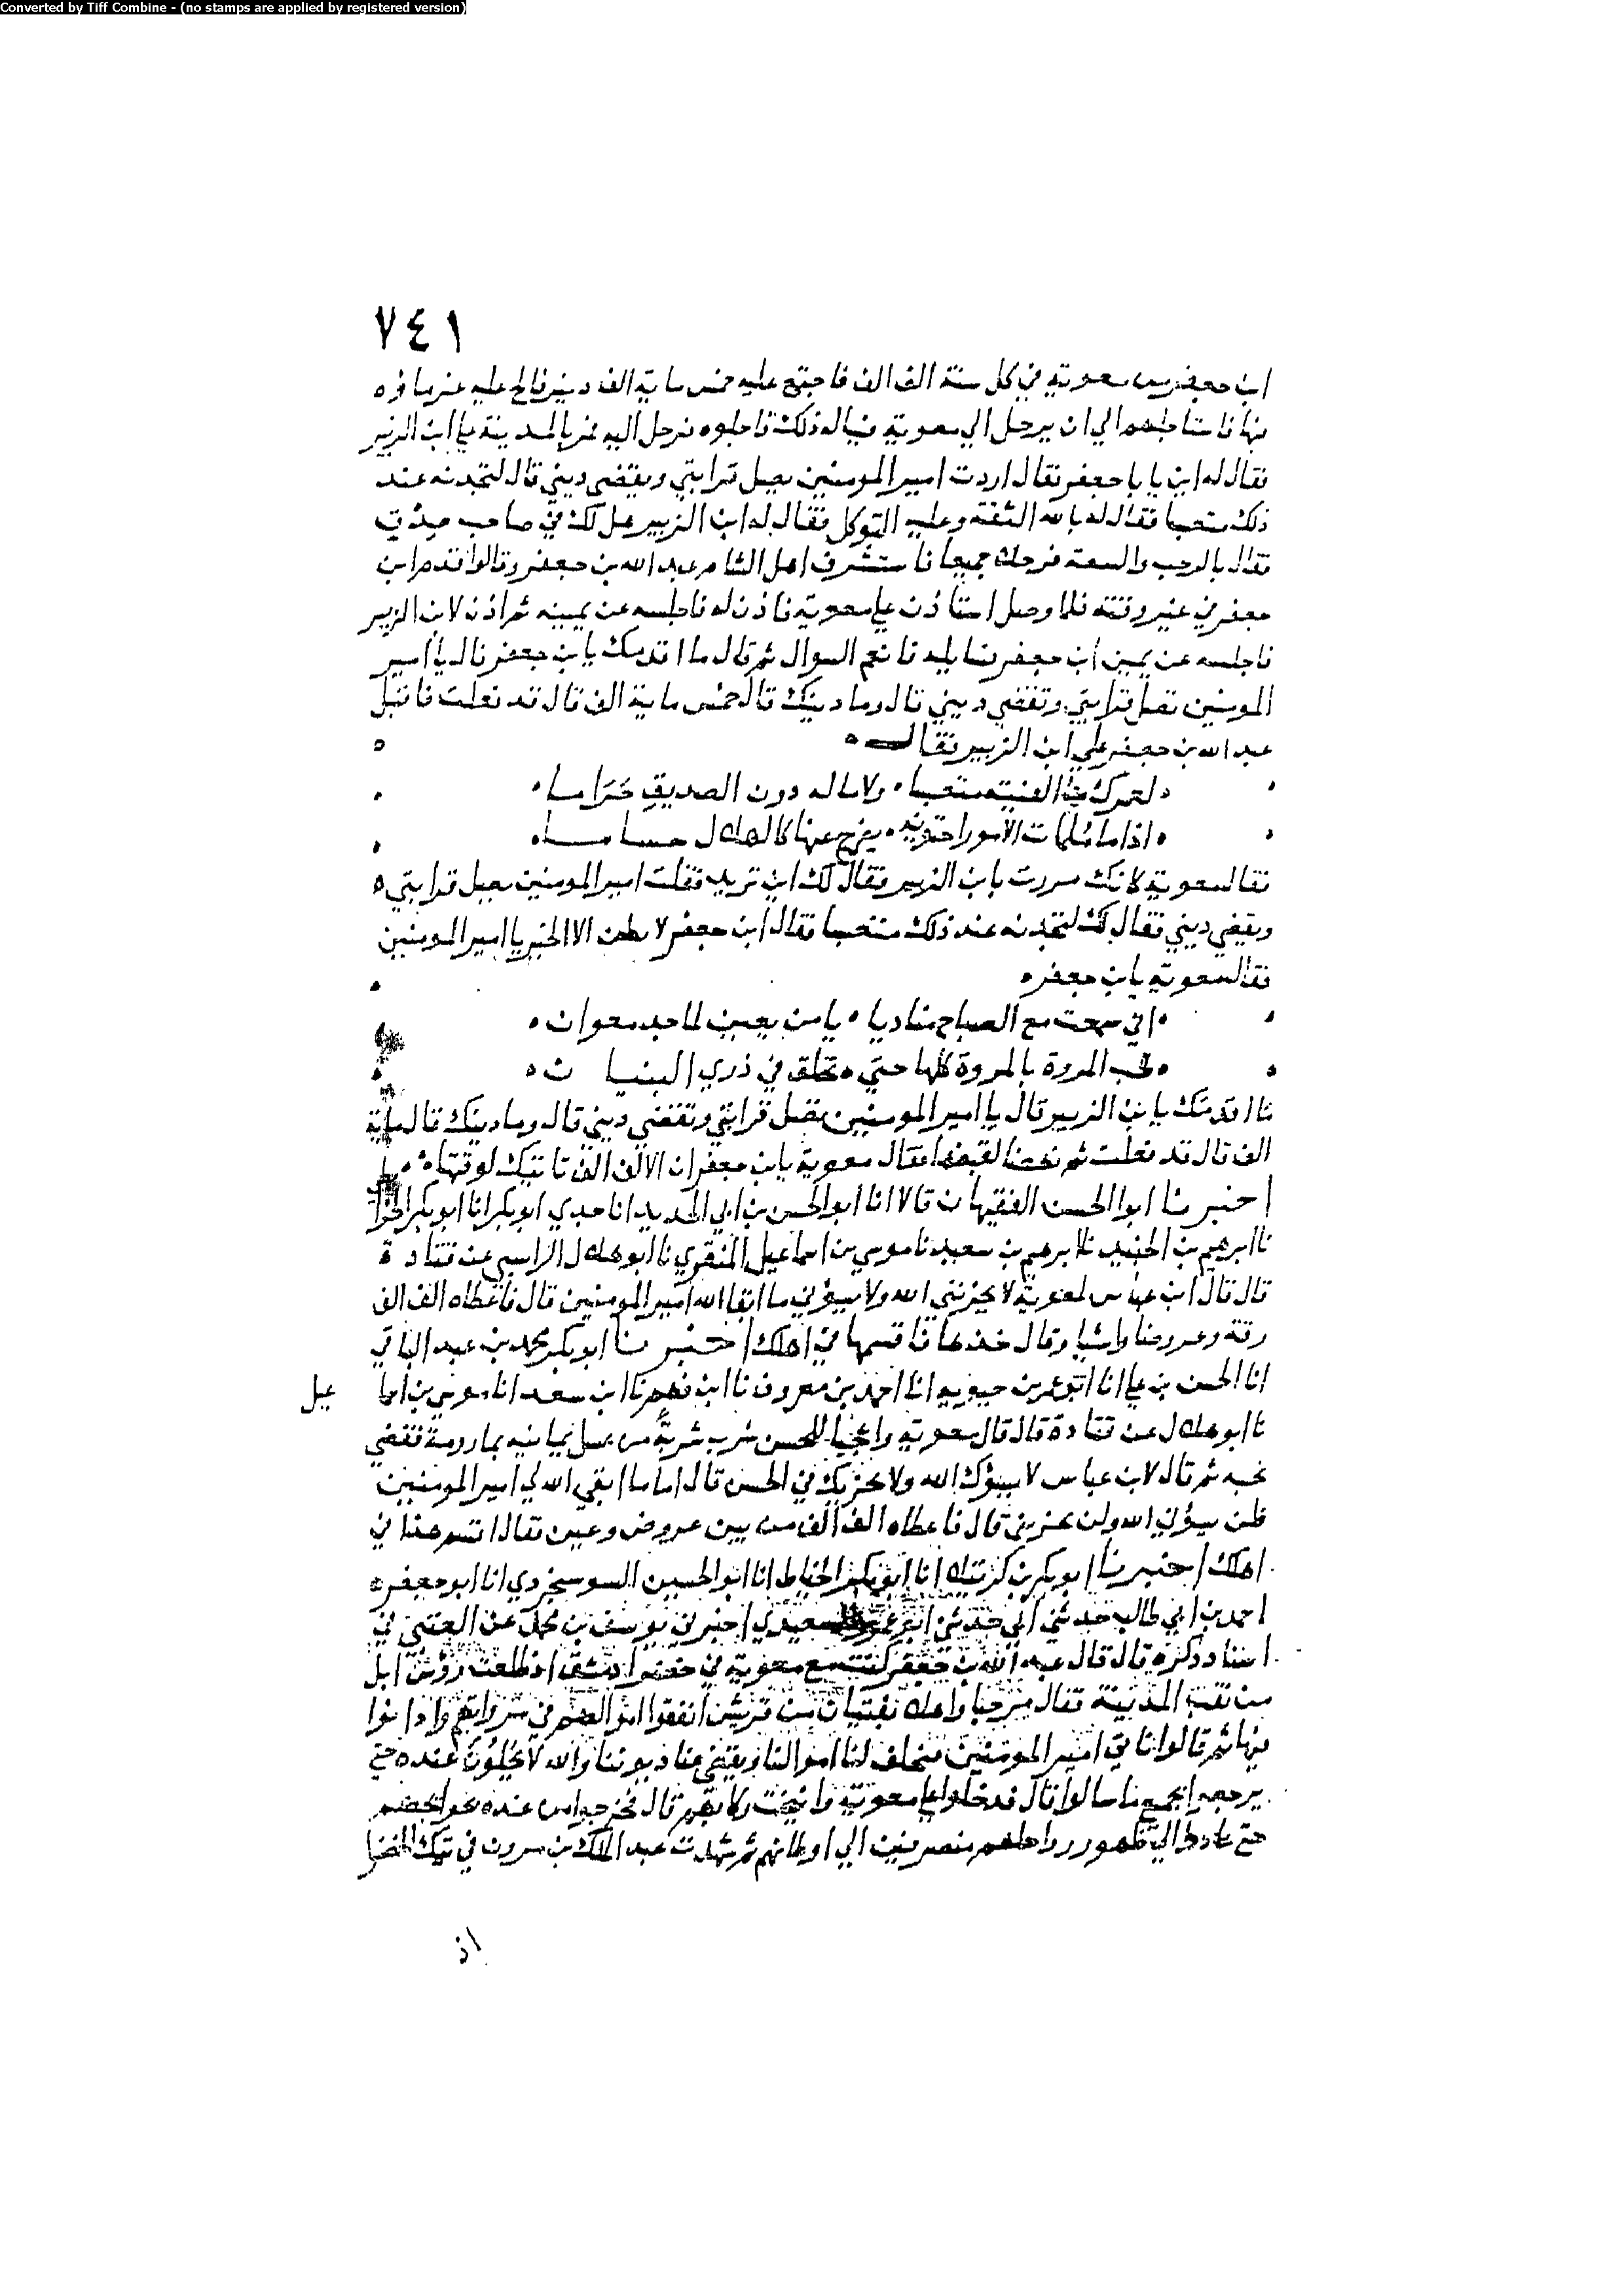 Converted by Tiff Combine - (no stamps are applied by registered version)
٧٤١
ابن جعفر من معوية في كل سنة الف الف فاجتمع عليه خمس ماية الف دين فالح عليه غرماوه
بها فاستاجلهم الي ان يرحل الي معوية فيساله ذلك فاجلوه فرحل اليه فمر بالمدينة علي ابن الزبير
فقال له اين يا با جعفر فقال اردت امير المومنين يصل قرابتي ويقضي ديني قال لتجدنه عند
ذلك متعبسا فقال له بالله الثقة وعليه التوكل فقال له ابن الزبير هل لك في صاحب صدق
فقال بالرحب والسعة فرحلا جميعا فاستشرف اهل الشام عبد الله بن جعفر وقالوا قدم ابن
جعفر في غير وقته فلما وصل استاذن علي معوية فاذن له فاجلسه عن يمينه ثم اذن لابن الزبير
فاجلسه عن يمين ابن جعفر فسايله فانعم السوال ثم قال ما اقدمك يا بن جعفر قال يا امير
المومنين تصل قرابتي وتقضي ديني قال وما دينك قال خمس ماية الف قال قد فعلت فاقبل
عبد الله بن جعفر علي ابن الزبير فقال
لعمرك ما الفيته متعبسا ولا ماله دون الصديق حراما
اذا ما ملمات الامور احتوينه يفرج عنها كالهلال حساما
فقال معوية لانك مررت بابن الزبير فقال لك اين تريد فقلت امير المومنين يصل قرابتي
ويقضي ديني فقال لك لتجدنه عند ذلك متعبسا فقال ابن جعفر لا يظن الا الخير يا امير المومنين
فقال معوية يا بن جعفر
اني سمعت مع الصباح مناديا يا من يعين لماجد معوان
طلب المروة بالمروة كلها حتي تحلق في ذري البنيان
ما اقدمك يا بن الزبير قال يا امير المومنين تصل قرابتي وتقضي ديني قال وما دينك قال ماية
الف قال قد فعلت ثم نهضا لقبضها فقال معوية يا بن جعفر ان الالف الف تاتيك لوقتها
اخبرنا ابوا الحسن الفقيهان قالا انا ابو الحسن بن ابي الحديد انا جدي ابو بكر انا ابو بكر الخرا
نا ابرهيم بن الجنيد نا ابرهيم بن سعيد نا موسي بن اسماعيل المنقري نا ابو هلال الراسبي عن قتادة
قال قال ابن عباس لمعوية لا يحزنني الله ولا يسؤني ما ابقا الله امير المومنين قال فاعطاه الف الف
رقة وعروضا واشيا وقال خذها فاقسمها في اهلك اخبرنا ابو بكر محمد بن عبد الباقي
انا الحسن بن علي انا ابو عمر بن حيويه انا احمد بن معروف نا ابن فهم نا ابن سعد انا موسي بن اسما عيل
نا ابو هلال عن قتادة قال قال معوية واعجبا للحسن شرب شربة من عسل يمانية بما رومة فقضي
نحبه ثم قال لابن عباس لا يسؤك الله ولا يحزنك في الحسن قال اما ما ابقي الله لي امير المومنين
فلن يسؤني الله ولن يحزنني قال فاعطاه الف الف من بين عروض وعين فقال اقسم هذا في
اهلك اخبرنا ابو بكر بن كرتيلا انا ابو بكر الخياط انا ابو الحسين السوسنجردي انا ابو جعفر
احمد بن ابي طالب حدثني ابي حدثني ابو عمرو السعيدي اخبرني يوسف بن محمد عن العتبي في
اسناد ذكره قال قال عبد الله بن جعفر كنت مع معوية في خضرا دمشق اذ طلعت رؤس ابل
من نقب المدينة فقال مرحبا واهلا بفتيان من قريش انفقوا اموالهم في مرواتهم وادانوا
فيها ثم قالوا ناتي امير المومنين فيخلف لنا اموالنا ويقضي عنا ديوننا والله لا يحلون عنده حتي
يرجعوا بجميع ما سالوا قال فدخلوا علي معوية وانيخت ركابهم قال فخرجوا من عنده بحوايجهم
حتي عادوا الي ظهور رواحلهم منصرفين الي اوطانهم ثم شهدت عبد الملك بن مرون في تلك الخضرا
اذ